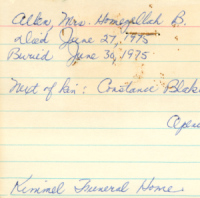 Allen, Mrs. Homerzellah B.
Died June 27, 1975
Buried June 30, 1975
Next of kin: Constance Blak
Kimmel Funeral Home